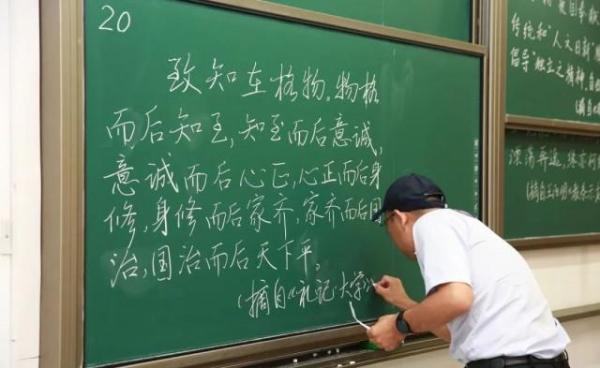 20
致知在格物,物格
而后知至,知至而后意诚,
意诚而后心正,心正而后身
修,身修而后家齐,家齐而后国
治,国治而后天下平。
(摘自《礼记·大学》
传统和"人文日新"
倡导"独立之精神,自
(摘自